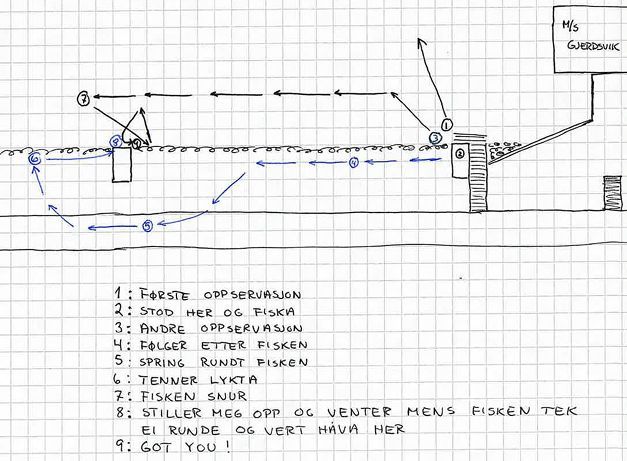 M/S
GJERDSVIK
7
1
3
8
9
2
6
4
5
1: FØRSTE OPPSERVASJON
2: STOD HER OG FISKA
3: ANDRE OPPSERVASJON
4: FØLGER ETTER FISKEN
5: SPRING RUNDT FISKEN
6: TENNER LYKTA
7: FISKEN SNUR
8: STILLER MEG OPP OG VENTER MENS FISKEN TEK
EI RUNDE OG VERT HÅVA HER
9: GOT YOU!